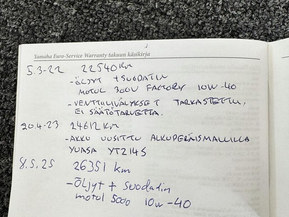 Yamaha Euro-Service Warranty takuun käsikirja
5.3-22 22540 km
- ÖLJYT + SUODATIN
MOTUL 300V FACTORY 10W-40
- VENTTIILIVÄLYKSET TARKASTETTU,
EI SÄÄTÖTARVETTA.
20.4-23 24612 km
- AKKU UUSITTU ALKUPERÄISMALLILLA
YUASA YTZ14S
8.5.25 26351 km
- Öljyt + Suodatin
motul 5000 10w-40